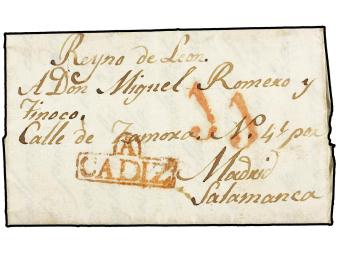 Reyno de Leon.
A Don Miguel Romero y
Tinoco.
Calle de Zamora. N. 4º por
Madrid
Salamanca
CADIZ